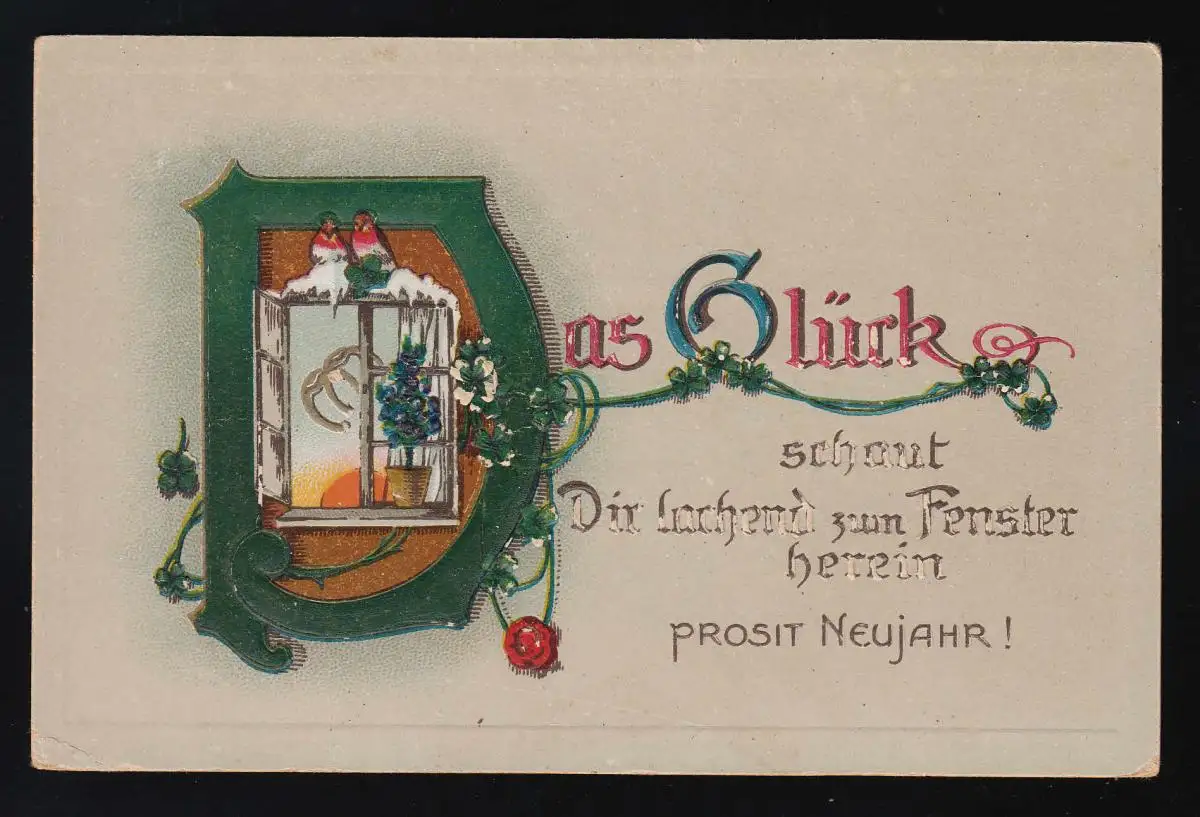 Das Glück
schaut
Dir lachend zum Fenster
herein
PROSIT NEUJAHR!